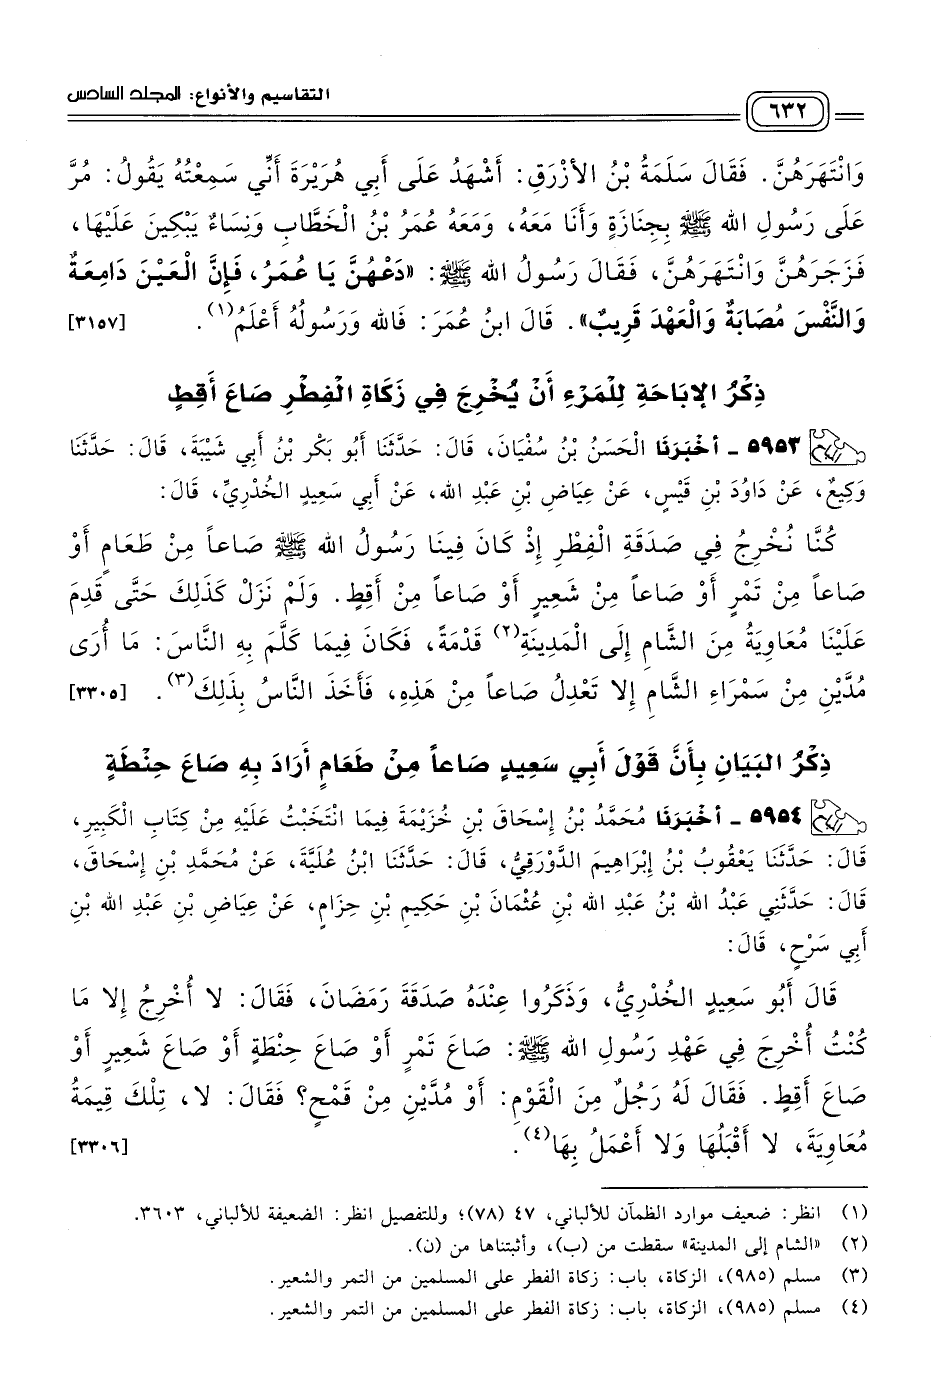 ٦٣٢
التقاسيم والأنواع: المجلد السادس
وَانْتَهَرَهُنَّ. فَقَالَ سَلَمَةُ بْنُ الأَزْرَقِ: أَشْهَدُ عَلَى أَبِي هُرَيْرَةَ أَنِّي سَمِعْتُهُ يَقُولُ: مُرَّ
عَلَى رَسُولِ اللهِ ﷺ بِجِنَازَةٍ وَأَنَا مَعَهُ، وَمَعَهُ عُمَرُ بْنُ الْخَطَّابِ وَنِسَاءٌ يَبْكِينَ عَلَيْهَا،
فَزَجَرَهُنَّ وَانْتَهَرَهُنَّ، فَقَالَ رَسُولُ اللهِ ﷺ: «دَعْهُنَّ يَا عُمَرُ، فَإِنَّ الْعَيْنَ دَامِعَةٌ
وَالنَّفْسَ مُصَابَةٌ وَالْعَهْدَ قَرِيبٌ». قَالَ ابنُ عُمَرَ: فَالله وَرَسُولُهُ أَعْلَمُ(١). [٣١٥٧]
ذِكْرُ الإبَاحَةِ لِلْمَرْءِ أَنْ يُخْرِجَ فِي زَكَاةِ الْفِطْرِ صَاعَ أَقِطٍ
٥٩٥٣ - أَخْبَرَنَا الْحَسَنُ بْنُ سُفْيَانَ، قَالَ: حَدَّثَنَا أَبُو بَكْرِ بْنُ أَبِي شَيْبَةَ، قَالَ: حَدَّثَنَا
وَكِيعٌ، عَنْ دَاوُدَ بْنِ قَيْسٍ، عَنْ عِيَاضِ بْنِ عَبْدِ اللهِ، عَنْ أَبِي سَعِيدٍ الْخُدْرِيِّ، قَالَ:
كُنَّا نُخْرِجُ فِي صَدَقَةِ الْفِطْرِ إِذْ كَانَ فِينَا رَسُولُ اللهِ ﷺ صَاعاً مِنْ طَعَامٍ أَوْ
صَاعاً مِنْ تَمْرٍ أَوْ صَاعاً مِنْ شَعِيرٍ أَوْ صَاعاً مِنْ أَقِطٍ. وَلَمْ نَزَلْ كَذَلِكَ حَتَّى قَدِمَ
عَلَيْنَا مُعَاوِيَةُ مِنَ الشَّامِ إِلَى الْمَدِينَةِ(٢) قَدْمَةً، فَكَانَ فِيمَا كَلَّمَ بِهِ النَّاسَ: مَا أُرَى
مُدَّيْنِ مِنْ سَمْرَاءِ الشَّامِ إِلا تَعْدِلُ صَاعاً مِنْ هَذِهِ، فَأَخَذَ النَّاسُ بِذَلِكَ(٣). [٣٣٠٥]
ذِكْرُ البَيَانِ بِأَنَّ قَوْلَ أَبِي سَعِيدٍ صَاعاً مِنْ طَعَامٍ أَرَادَ بِهِ صَاعَ حِنْطَةٍ
٥٩٥٤ - أَخْبَرَنَا مُحَمَّدُ بْنُ إِسْحَاقَ بْنِ خُزَيْمَةَ فِيمَا انْتَخَبْتُ عَلَيْهِ مِنْ كِتَابِ الْكَبِيرِ،
قَالَ: حَدَّثَنَا يَعْقُوبُ بْنُ إِبْرَاهِيمَ الدَّوْرَقِيُّ، قَالَ: حَدَّثَنَا ابْنُ عُلَيَّةَ، عَنْ مُحَمَّدِ بْنِ إِسْحَاقَ،
قَالَ: حَدَّثَنِي عَبْدُ اللهِ بْنُ عَبْدِ اللهِ بْنِ عُثْمَانَ بْنِ حَكِيمِ بْنِ حِزَامٍ، عَنْ عِيَاضِ بْنِ عَبْدِ اللهِ بْنِ
أَبِي سَرْحٍ، قَالَ:
قَالَ أَبُو سَعِيدٍ الْخُدْرِيُّ، وَذَكَرُوا عِنْدَهُ صَدَقَةَ رَمَضَانَ، فَقَالَ: لا أُخْرِجُ إِلا مَا
كُنْتُ أُخْرِجُ فِي عَهْدِ رَسُولِ اللهِ ﷺ: صَاعَ تَمْرٍ أَوْ صَاعَ حِنْطَةٍ أَوْ صَاعَ شَعِيرٍ أَوْ
صَاعَ أَقِطٍ. فَقَالَ لَهُ رَجُلٌ مِنَ الْقَوْمِ: أَوْ مُدَّيْنِ مِنْ قَمْحٍ؟ فَقَالَ: لا، تِلْكَ قِيمَةُ
مُعَاوِيَةَ، لا أَقْبَلُهَا وَلا أَعْمَلُ بِهَا(٤). [٣٣٠٦]
(١) انظر: ضعيف موارد الظمآن للألباني، ٤٧ (٧٨)؛ وللتفصيل انظر: الضعيفة للألباني، ٣٦٠٣.
(٢) «الشام إلى المدينة» سقطت من (ب)، وأثبتناها من (ن).
(٣) مسلم (٩٨٥)، الزكاة، باب: زكاة الفطر على المسلمين من التمر والشعير.
(٤) مسلم (٩٨٥)، الزكاة، باب: زكاة الفطر على المسلمين من التمر والشعير.